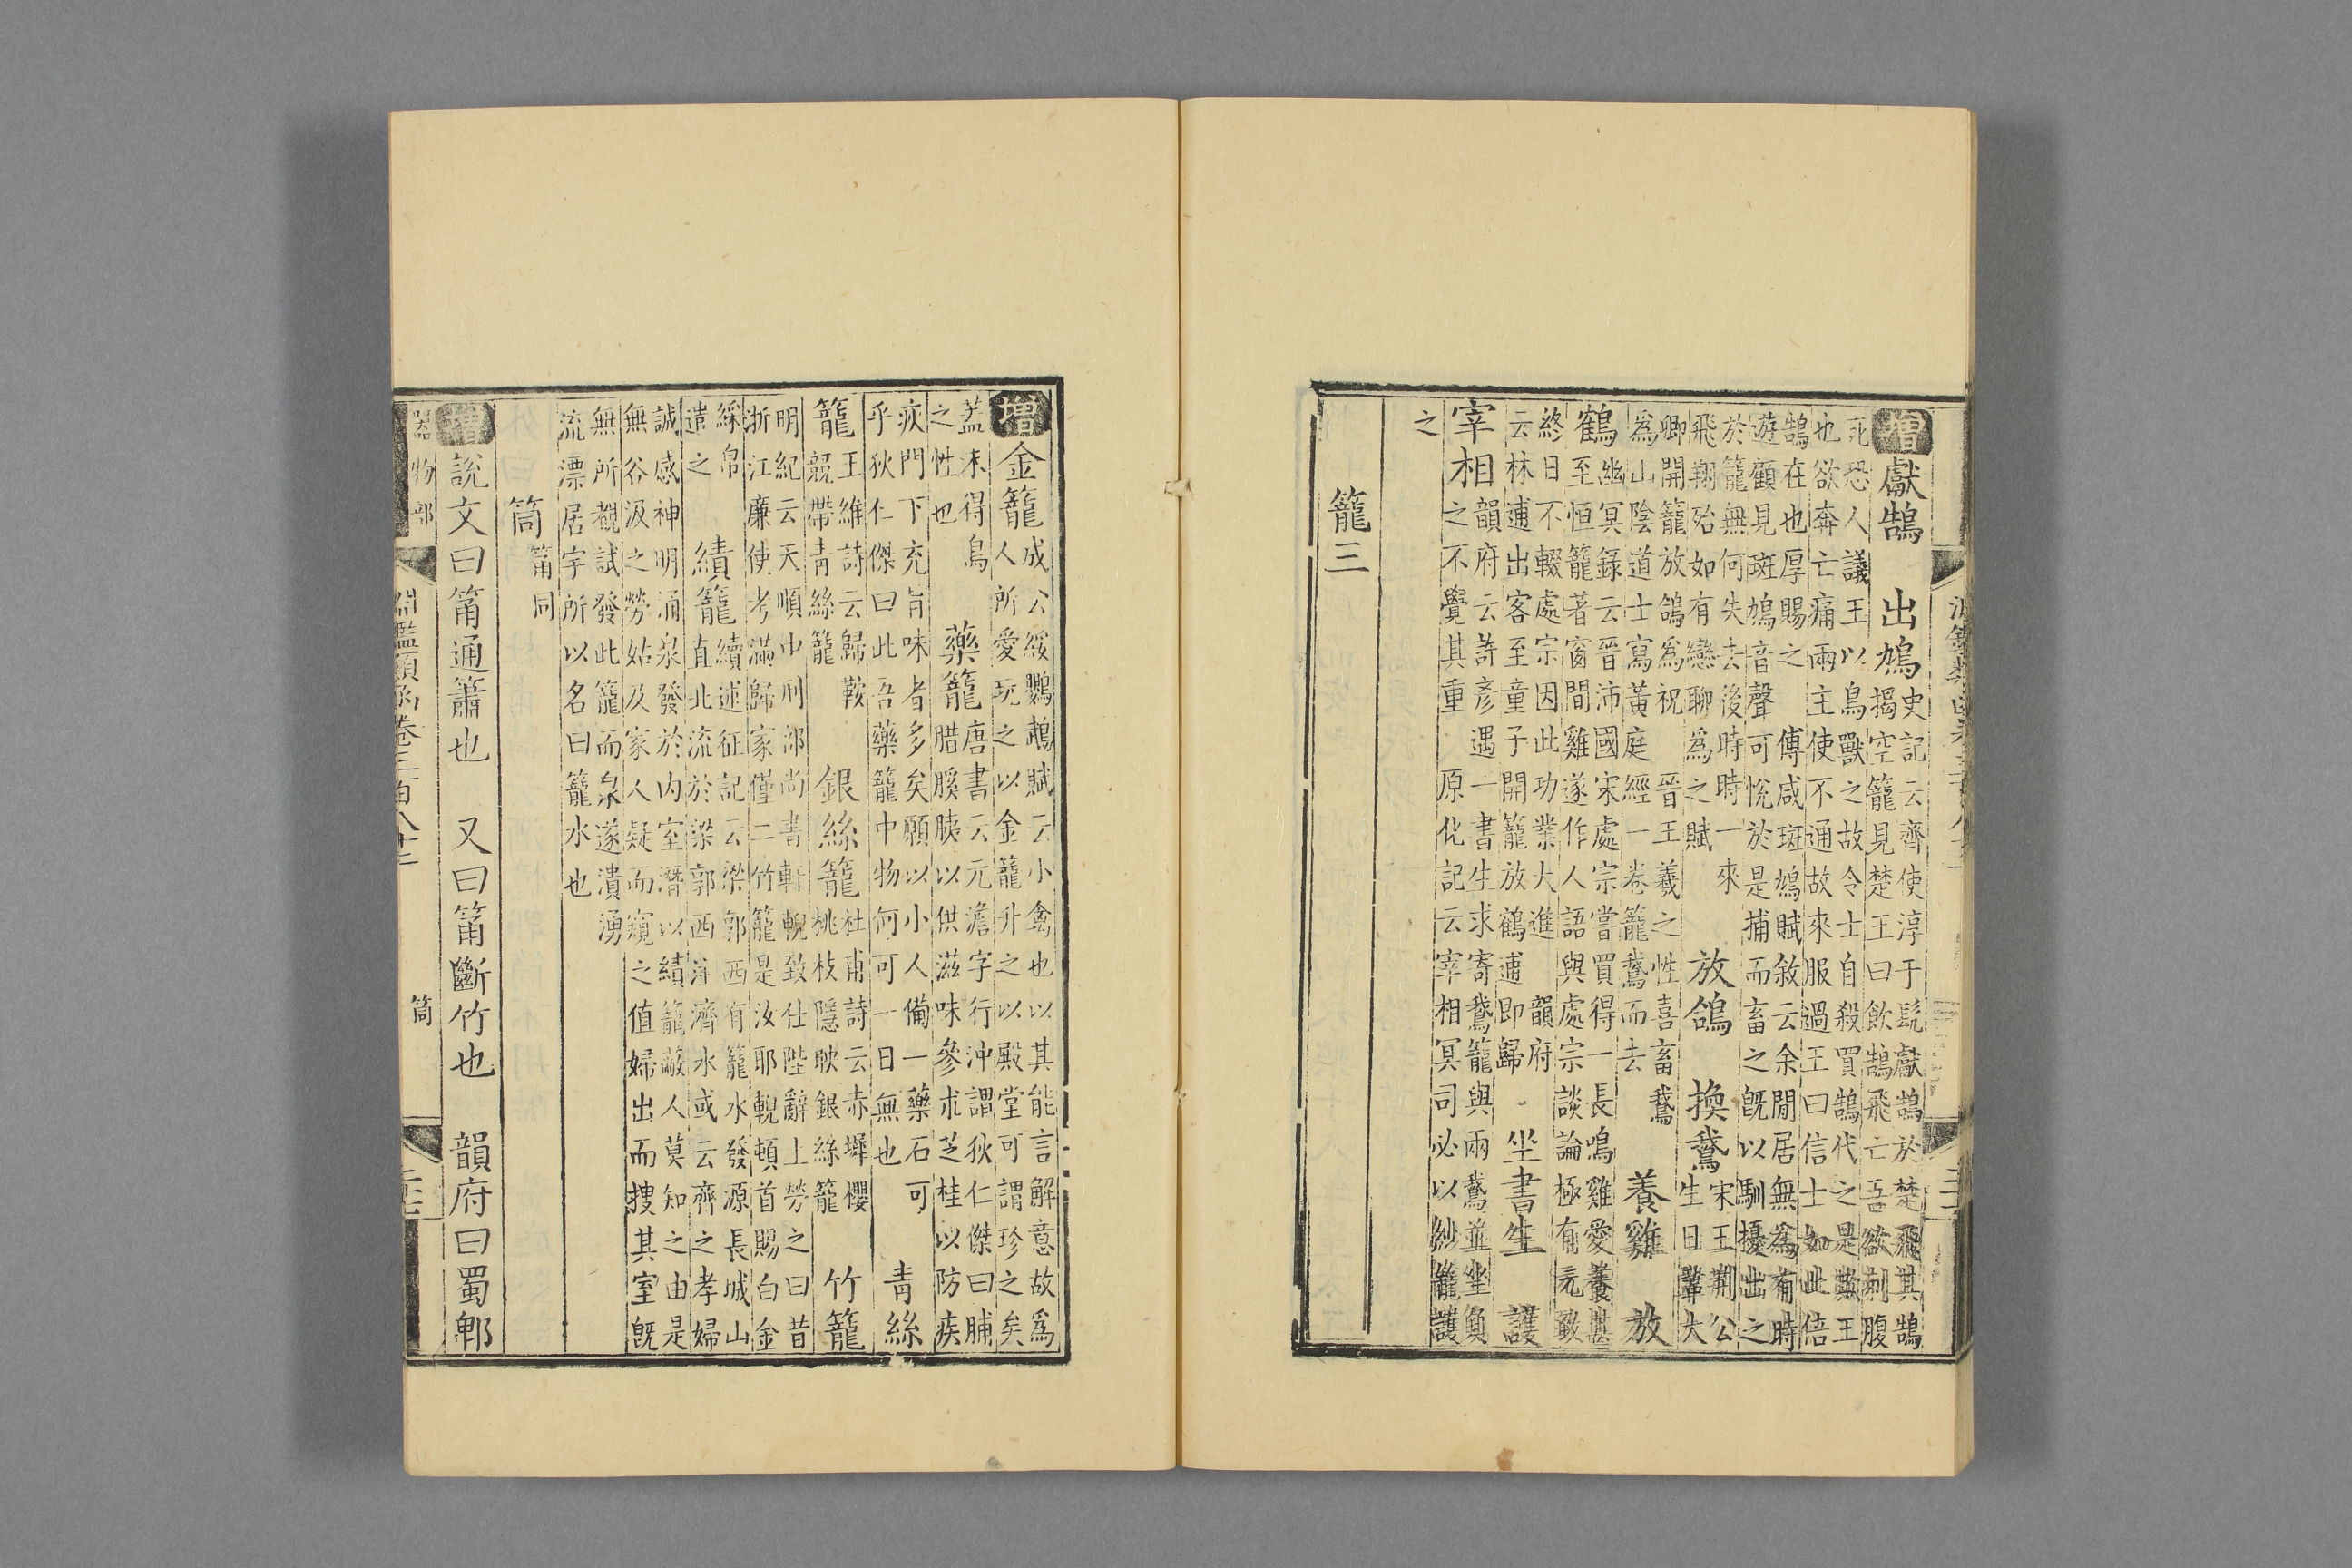 增獻鵠 出鳩史記云齊使淳于髡獻鵠於楚飛其鵠
揭空籠見楚王曰飮鵠飛亡吾欲刺腹
死恐人議王以鳥獸之故令士自殺買鵠代之是欺王
也欲奔亡痛兩主使不通故來服過王曰信士如此倍
鵠在也厚賜之 傅咸斑鳩賦敘云余閒居無爲有時
遊顧見斑鳩音聲可悅於是捕而畜之旣以馴擾出之
於籠無何失去後時時一來 放鴿 換鵞宋王荆公
飛翔殆如有戀聊爲之賦 生日鞏大
卿開籠放鴿爲祝 晉王羲之性喜畜鵞 養雞 放
爲山陰道士寫黃庭經一卷籠鵞而去
鶴幽冥錄云晉沛國宋處宗嘗買得一長鳴雞愛養甚
至恒籠著窗間雞遂作人語與處宗談論極有元致
終日不輟處宗因此功業大進 韻府 坐書生 護
云林逋出客至童子開籠放鶴逋即歸
宰相韻府云許彥遇一書生求寄鵞籠與兩鵞並坐負
之不覺其重 原化記云宰相冥司必以紗籠護
之
籠三
增金籠成公綏鸚鵡賦云小禽也以其能言解意故爲
人所愛玩之以金籠升之以殿堂可謂珍之矣
蓋未得鳥 藥籠唐書云元澹字行沖謂狄仁傑曰脯
之性也 腊膎胰以供滋味參朮芝桂以防疾
疢門下充旨味者多矣願以小人備一藥石可 青絲
乎狄仁傑曰此吾藥籠中物何可一日無也
籠王維詩云歸鞍 銀絲籠杜甫詩云赤墀櫻 竹籠
競帶青絲籠 桃枝隱映銀絲籠
明紀云天順中刑部尚書軒輗致仕陛辭上勞之曰昔
浙江廉使考滿歸家僅二竹籠是汝耶輗頓首賜白金
綵帛 績籠續述征記云梁郭西有籠水發源長城山
遣之 直北流於梁郭西注濟水或云齊之孝婦
誠感神明涌泉發於內室潛以績籠蔽人莫知之由是
無谷汲之勞姑及家人疑而窺之值婦出而搜其室旣
無所覩試發此籠而泉遂潰湧
流漂居宇所以名曰籠水也
筒筩同
增說文曰筩通簫也 又曰筩斷竹也 韻府曰蜀郫
器物部 筒
淵鑑類函卷三百八十三